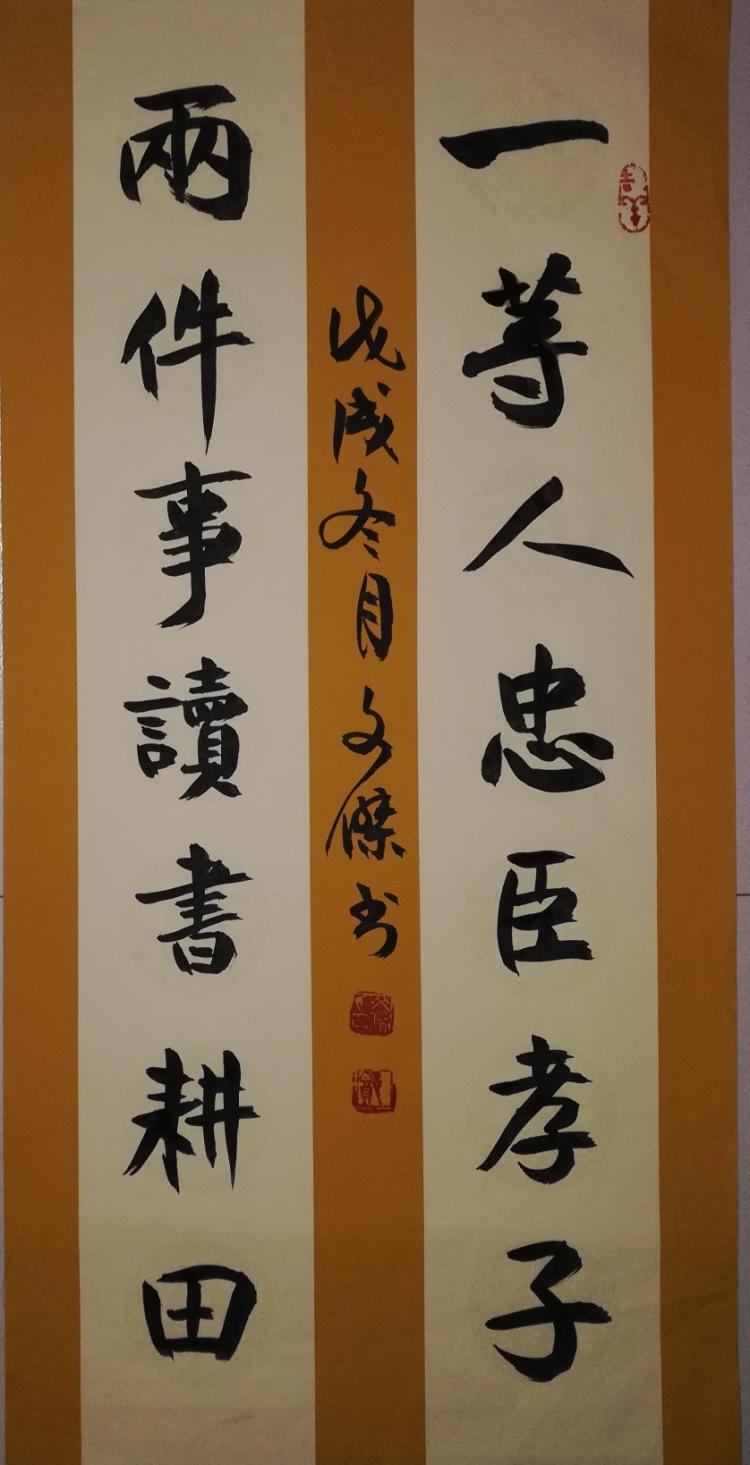 一等人忠臣孝子
兩件事讀書耕田
戊戌冬月文傑书